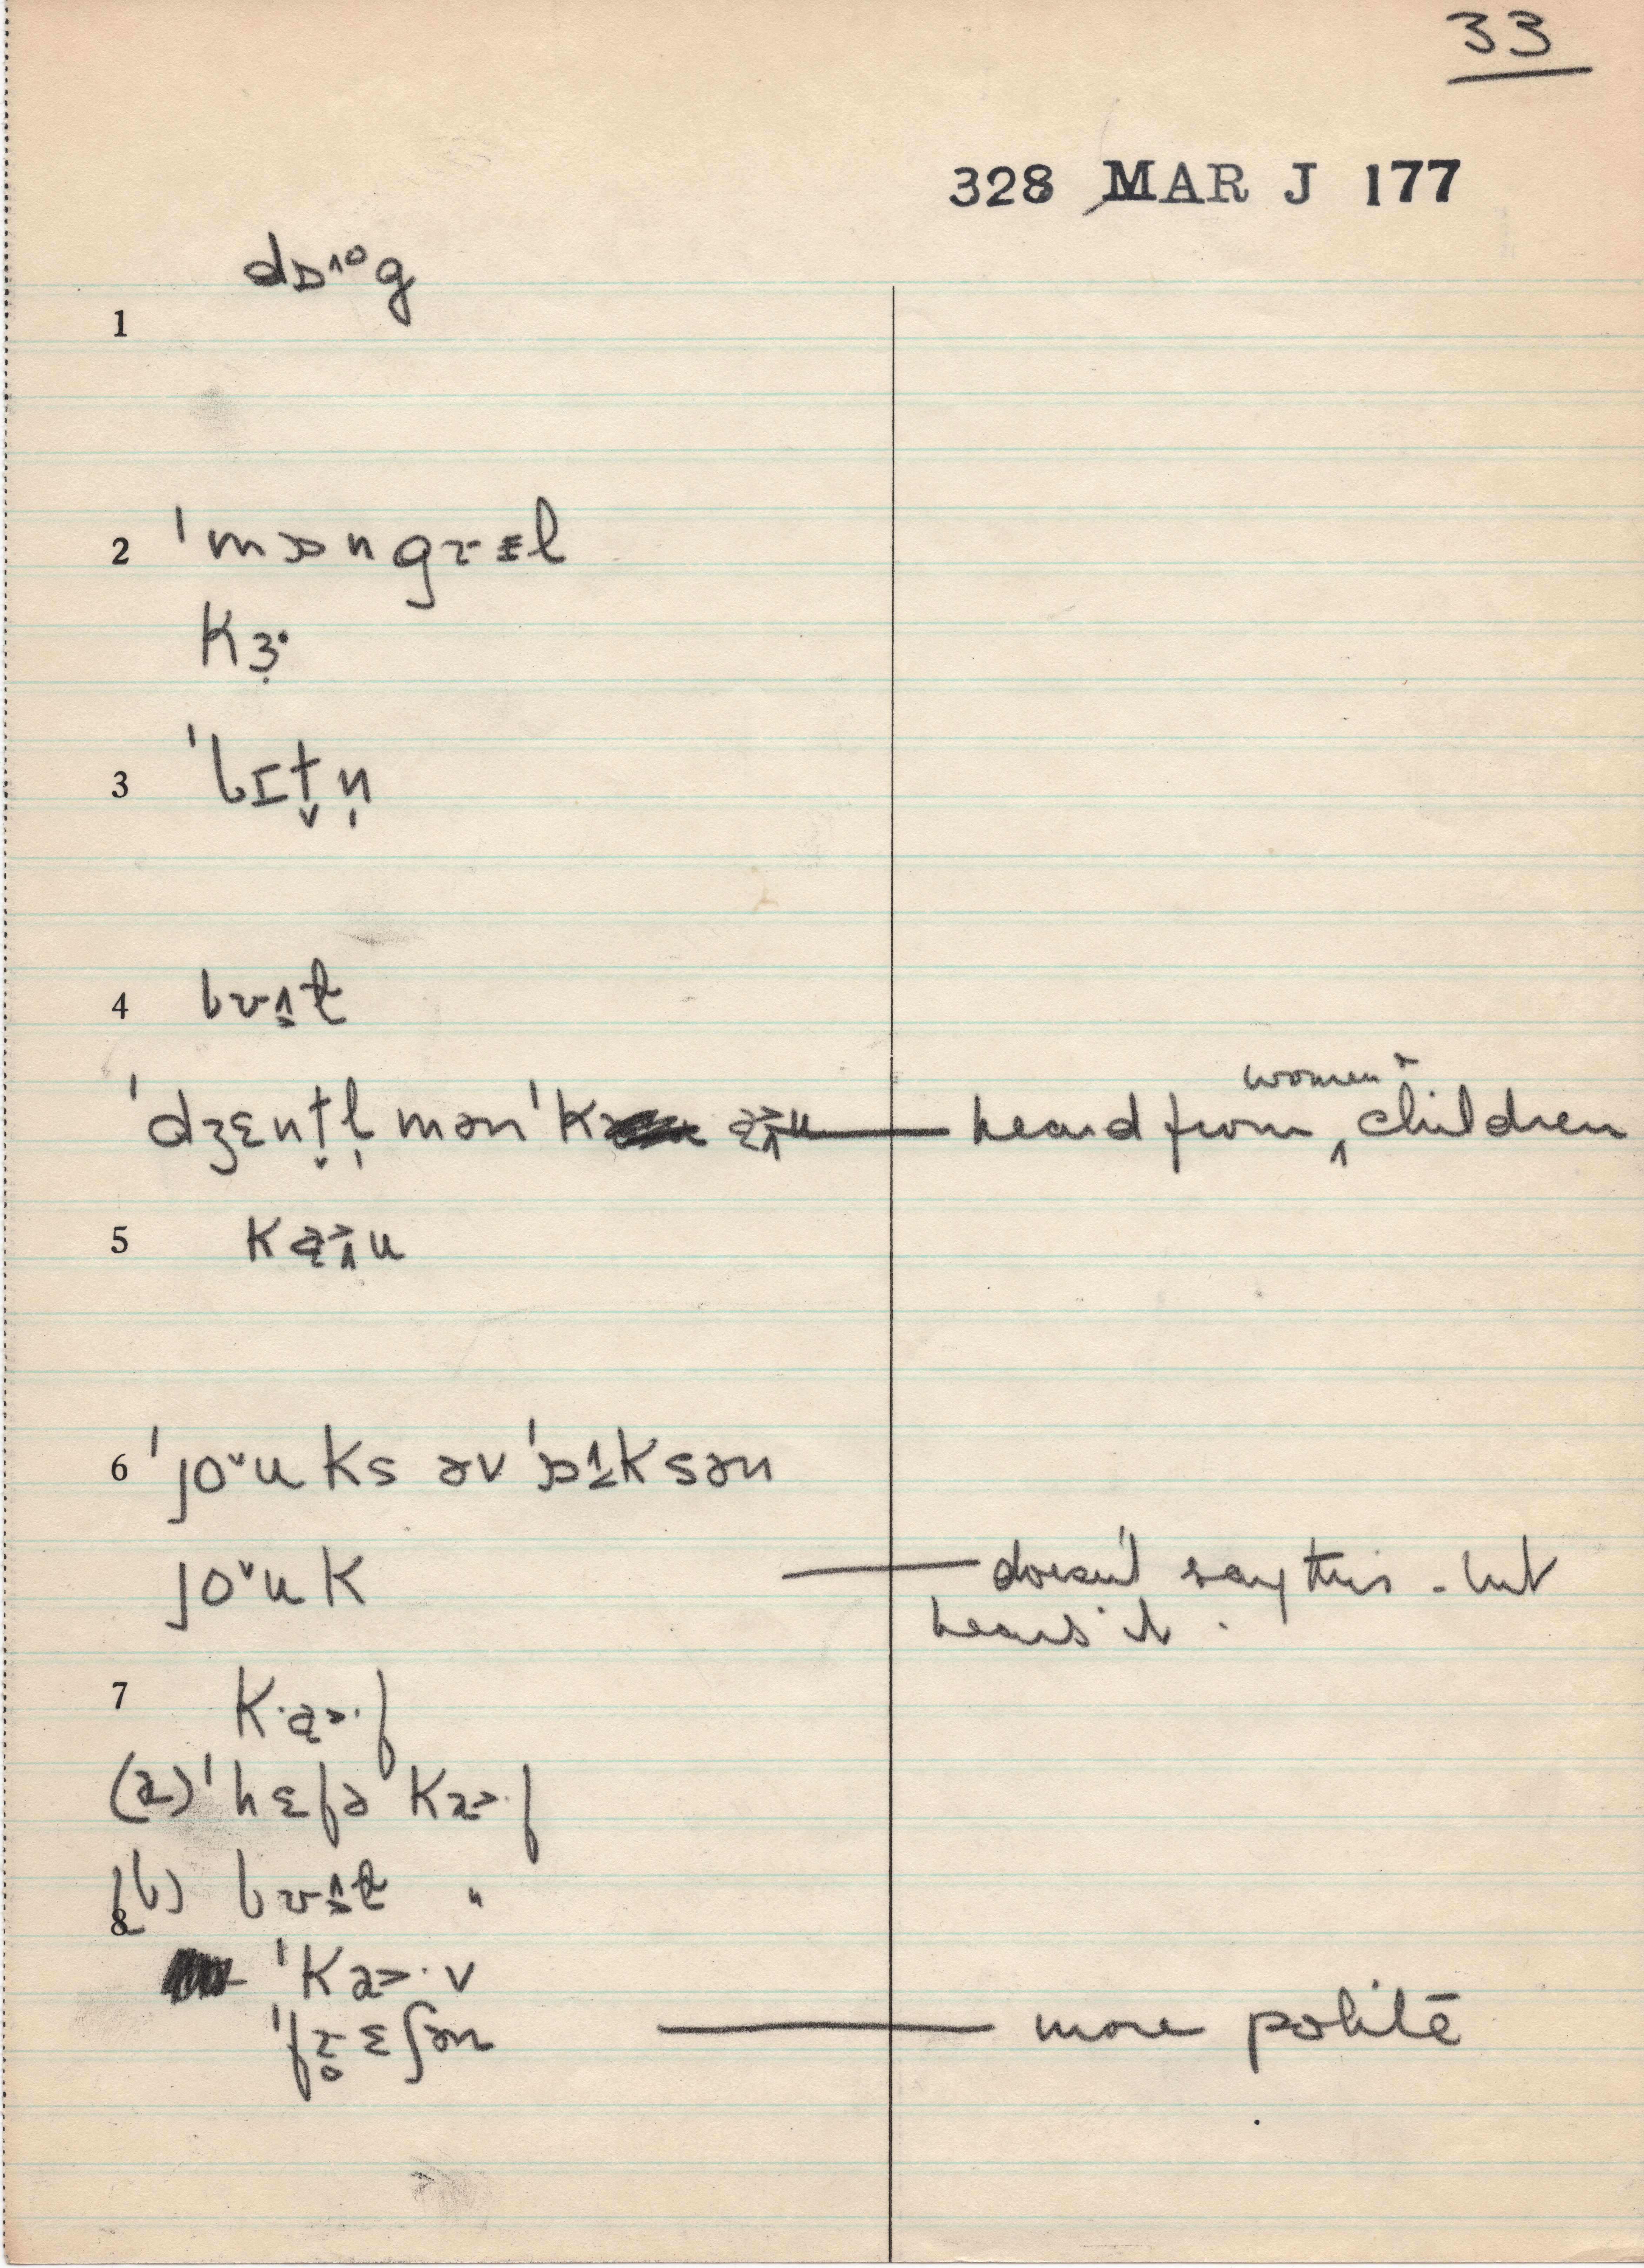 33
328 MAR J 177
1 dɒ^ɒg
2 'mɒngɹɛl
Kɜ̣·
3 'bɪt̬n̩
4 bʊɫ
'dʒɛnt̬l̩mən'K aʊ — heard from women + children
5 Kaʊ
6 'joˇuks əv 'ɒksən
joˇuk — doesn't say this - but
hears it.
7 K·a>·f
(a) 'hɛfə Ka>·f
(b) bʊɫ "
8
'Ka>·v
'fɹ̥ɛʃən — more polite